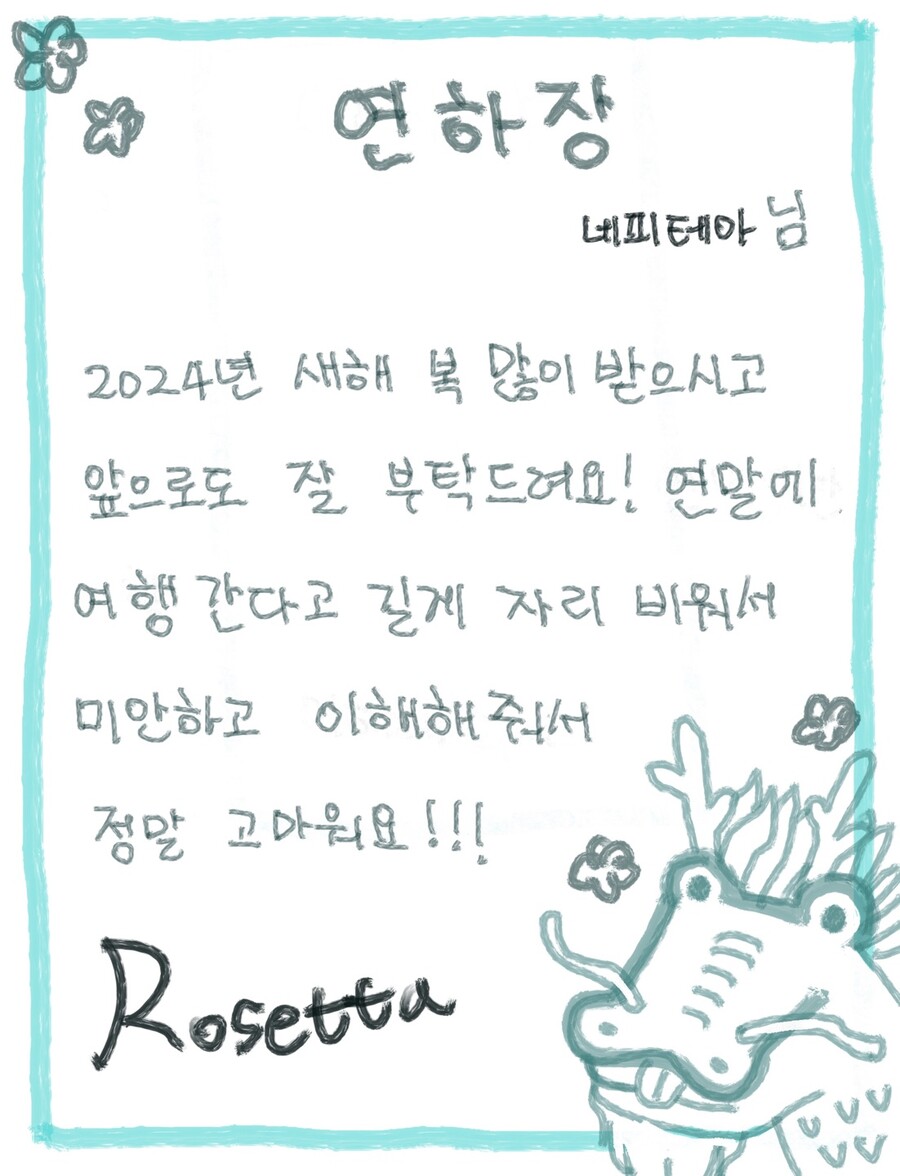 연하장
네피테아 님
2024년 새해 복 많이 받으시고
앞으로도 잘 부탁드려요! 연말에
여행 간다고 길게 자리 비워서
미안하고 이해해줘서
정말 고마워요!!!
Rosetta